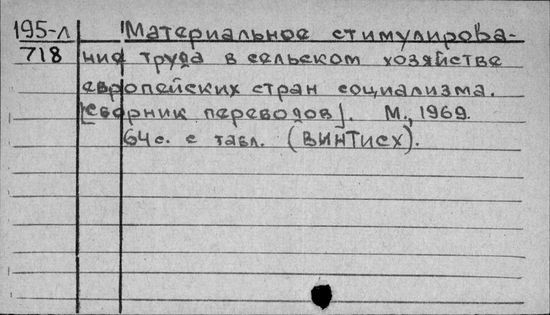 195-л
718
Материальное стимулирова-
ние труда в сельском хозяйстве
европейских стран социализма.
[Сборник переводов]. М., 1969.
64 с. с табл. (ВИНТИСХ).